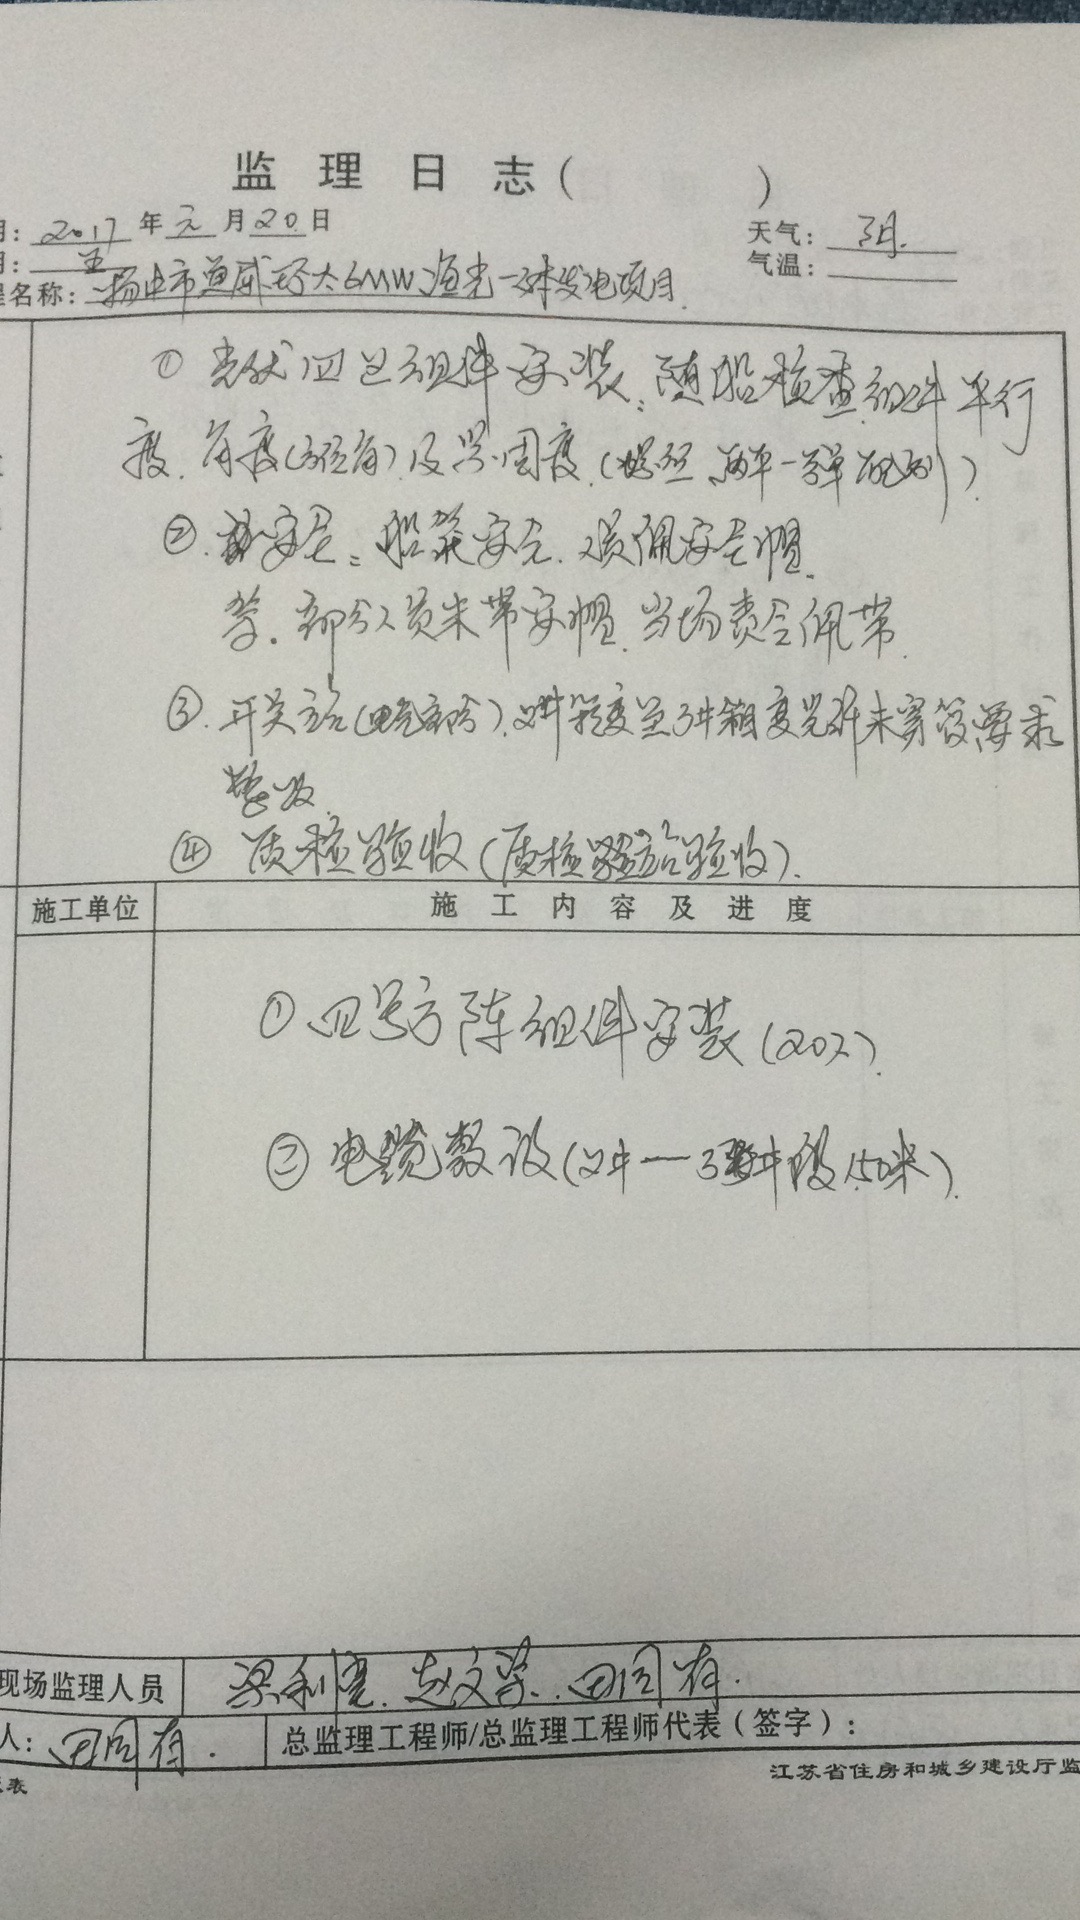 监理日志( )
期: 2017年元月20日 天气: 阴.
期: 五 气温:
程名称: 扬中市通威 太6MW渔光一体发电项目.
① 光伏四 组件安装: 随船检查组件平行
度. 角度(方位角)及 固度. (螺丝. 两平一弹配列)
②. 安全: 船 安全. 员佩安全帽.
等. 部分人员未带安帽. 当场责令佩带.
③. 开关 (电气部分). 2#箱变至3#箱变光纤未穿管要求
整改.
④ 质检验收(质检 验收).
施工单位 施工内容及进度
① 四号方阵组件安装(20人).
② 电缆敷设(2#——3#段150米).
现场监理人员 梁利 . 赵文 . 田同有.
人: 田同有. 总监理工程师/总监理工程师代表(签字):
表 江苏省住房和城乡建设厅监